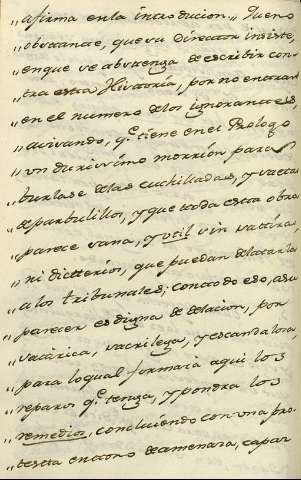 "afirma en la introducion," Que no
"obstante, que su Director insiste,
"en que se abstenga de escribir con
"tra esta Historia, por no entrar
"en el numero de los ignorantes,
"avisando, q.e tiene en el Prologo
"un durissimo morrión para
"burlarse de las cuchilladas, y
"de parbulillos, y que toda esta obra
"parece sana, y util sin satira,
"ni dicterios, que puedan delatarla
"a los tribunales; con todo eso, a su
"parecer es digna de delacion, por
"satirica, sacrilega, y escandalosa,
"para lo qual formará aqui los
"reparos q.e tenga, y pondra los
"remedios, concluiendo con una pro
"testa en tono de amenaza,